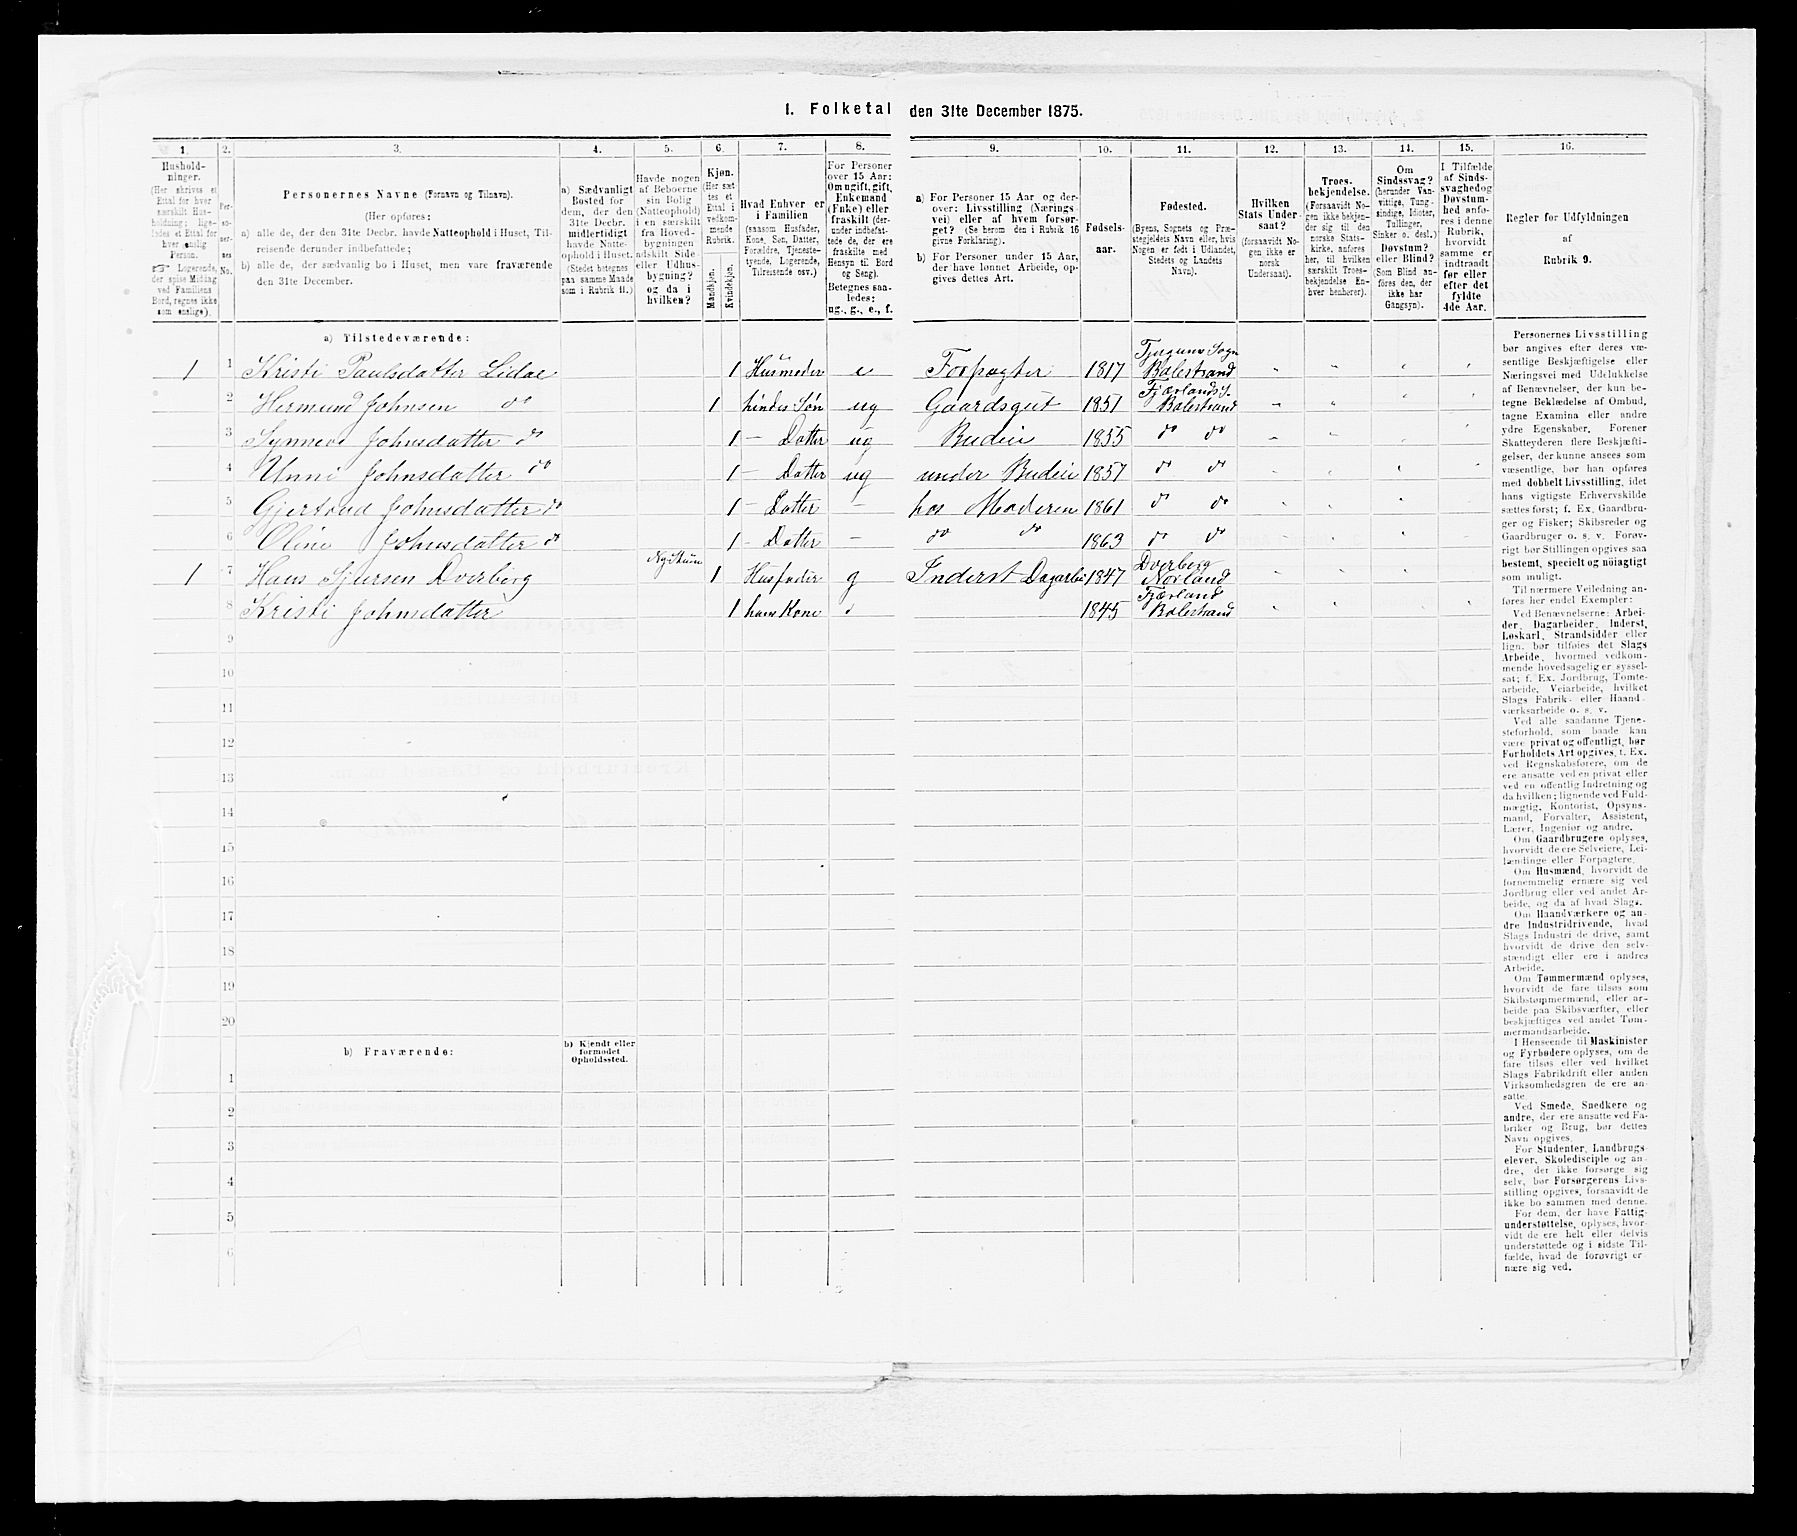 1. Folketal den 31te December 1875.
1. 2. 3. 4. 5. 6. 7. 8. 9. 10. 11. 12. 13. 14. 15. 16.
Hushold-
ninger.
(Her skrives et
Ettal for hver
særskilt Hus-
holdning; lige-
ledes et Ettal for
hver enslig
Person.
☞ Logerende,
der spise Middag
ved Familiens
Bord, regnes ikke
som enslige).
Per-
so-
ner-
nes
No.
Personernes Navne (Fornavn og Tilnavn).
(Her opføres:
a) alle de, der den 31te Decbr. havde Natteophold i Huset, Til-
reisende derunder indbefattede;
b) alle de, der sædvanlig bo i Huset, men vare fraværende
den 31te December.
a) Sædvanligt
Bosted for
dem, der den
31te Decbr.
midlertidigt
havde Natte-
ophold i Huset.
(Stedet betegnes
paa samme Maade
som i Rubrik 11.)
Havde nogen
af Beboerne
sin Bolig
(Natteophold)
i en særskilt
fra Hoved-
bygningen
adskilt Side-
eller Udhus-
bygning?
og da i
hvilken?
Kjøn.
(Her sæt-
tes et
Ettal i
vedkom-
mende
Rubrik.
Mandkjøn.
Kvindekjøn.
Hvad Enhver er
i Familien
(saasom Husfader,
Kone, Søn, Datter,
Forældre, Tjeneste-
tyende, Logerende,
Tilreisende osv.)
For Personer
over 15 Aar:
Om ugift, gift,
Enkemand
(Enke) eller
fraskilt (der-
under indbefat-
tede de, der ere
fraskilte med
Hensyn til Bord
og Seng).
Betegnes saa-
ledes:
ug., g., e., f.
a) For Personer 15 Aar og der-
over: Livsstilling (Nærings-
vei) eller af hvem forsør-
get? (Se herom den i Rubrik 16
givne Forklaring).
b) For Personer under 15 Aar,
der have lønnet Arbeide, op-
gives dettes Art.
Fødsels-
aar.
Fødested.
(Byens, Sognets og Præ-
stegjeldets Navn eller, hvis
Nogen er født i Udlandet,
Stedets og Landets
Navn).
Hvilken
Stats Under-
saat?
(forsaavidt No-
gen ikke er
norsk
Undersaat).
Troes-
bekjendelse.
(Forsaavidt No-
gen ikke bekjen-
der sig til den
norske Stats-
kirke, anføres
her, til hvilken
særskilt Troes-
bekjendelse En-
hver henhører).
Om
Sindssvag?
(herunder Van-
vittige, Tung-
sindige, Idioter,
Tullinger,
Sinker o. desl.)
Døvstum?
eller Blind?
(Som Blind an-
føres den, der
ikke har
Gangsyn).
I Tilfælde
af Sinds-
svaghed og
Døvstum-
hed anfø-
res i denne
Rubrik,
hvorvidt
samme er
indtraadt
før eller
efter det
fyldte
4de Aar.
Regler for Udfyldningen
af
Rubrik 9.
a) Tilstedeværende:
1 1 Kristi Paulsdatter Lidae 1 Husmoder e Forpagter 1817 Sogn Balestrand
2 Hermund Johnsen do 1 hindes Søn ug Gaardsgut 1851 Fjærlands S. Balestrand
3 Synneve Johnsdatter do 1 — Datter ug Budeie 1855 do do
4 Unni Johnsdatter do 1 — Datter ug under Budeie 1857 do do
5 Gjertrud Johnsdatter do 1 — Datter — hos Moderen 1861 do do
6 Oline Johnsdatter do 1 — Datter — do do 1863 do do
1 7 Hans Sjursen Dverberg 1 Husfader g Inderst Dagarbei 1847 Dverberg Norland
8 Kristi Johnsdatter 1 hans Kone 1845 Fjærland Balestrand
9
10
11
12
13
14
15
16
17
18
19
20
b) Fraværende:
b) Kjendt eller
formodet
Opholdssted.
1
2
3
4
5
6
Personernes Livsstilling
bør angives efter deres væ-
sentlige Beskjæftigelse eller
Næringsvei med Udelukkelse
af Benævnelser, der kun be-
tegne Beklædelse af Ombud,
tagne Examina eller andre
ydre Egenskaber. Forener
Skatteyderen flere Beskjæfti-
gelser, der kunne ansees som
væsentlige, bør han opføres
med dobbelt Livsstilling, idet
hans vigtigste Erhvervskilde
sættes først; f. Ex. Gaardbru-
ger og Fisker; Skibsreder og
Gaardbruger o. s. v. Forøv-
rigt bør Stillingen opgives saa
bestemt, specielt og nøiagtigt
som muligt.
Til nærmere Veiledning an-
føres her endel Exempler:
Ved Benævnelserne: Arbei-
der, Dagarbeider, Inderst,
Løskarl, Strandsidder eller
lign. bør tilføies det Slags
Arbeide, hvormed vedkom-
mende hovedsagelig er syssel-
sat; f. Ex. Jordbrug, Tomte-
arbeide, Veiarbeide, hvilket
Slags Fabrik- eller Haand-
værksarbeide o. s. v.
Ved alle saadanne Tjene-
steforhold, som baade kan
være privat og offentligt, bør
Forholdets Art opgives, f. Ex.
ved Regnskabsførere, om de
ere ansatte ved en privat eller
ved en offentlig Indretning og
da hvilken; lignende ved Fuld-
mægtig, Kontorist, Opsyns-
mand, Forvalter, Assistent,
Lærer, Ingeniør og andre.
Om Gaardbrugere oplyses,
hvorvidt de ere Selveiere, Lei-
lændinge eller Forpagtere.
Om Husmænd, hvorvidt de
fornemmelig ernære sig ved
Jordbrug eller ved andet Ar-
beide, og da af hvad Slags.
Om Haandværkere og an-
dre Industridrivende, hvad
Slags Industri de drive, samt
hvorvidt de drive den selv-
stændigt eller ere i andres
Arbeide.
Om Tømmermænd oplyses,
hvorvidt de fare tilsøs som
Skibstømmermænd, eller ar-
beide paa Skibsværfter, eller
beskjæftiges ved andet Tøm-
mermandsarbeide.
I Henseende til Maskinister
og Fyrbødere oplyses, om de
fare tilsøs eller ved hvilket
Slags Fabrikdrift eller anden
Virksomhedsgren de ere an-
satte.
Ved Smede, Snedkere og
andre, der ere ansatte ved Fa-
briker og Brug, bør dettes
Navn opgives.
For Studenter, Landbrugs-
elever, Skoledisciple og an-
dre, der ikke forsørge sig
selv, bør Forsørgerens Livs-
stilling opgives, forsaavidt de
ikke bo sammen med denne.
For dem, der have Fattig-
understøttelse, oplyses, hvor-
vidt de ere helt eller delvis
understøttede og i sidste Til-
fælde, hvad de forøvrigt er-
nære sig ved.